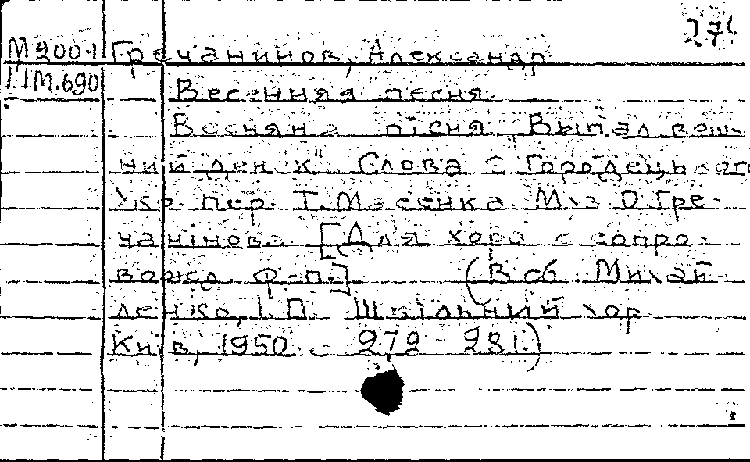 М2001 Гречанинов, Александр
ПМ.690 Весенняя песня.
Весняна пісня "Выпал веш-
ний денёк" Слова С. Городецького
Укр. пер. Т. Масенка. Муз. О. Гре-
чанінова. [Для хора с сопро-
вожд. ф-п.] (В сб. Михай-
ленко, І. П. Шкільний хор
Київ, 1950. с. 279-281.)